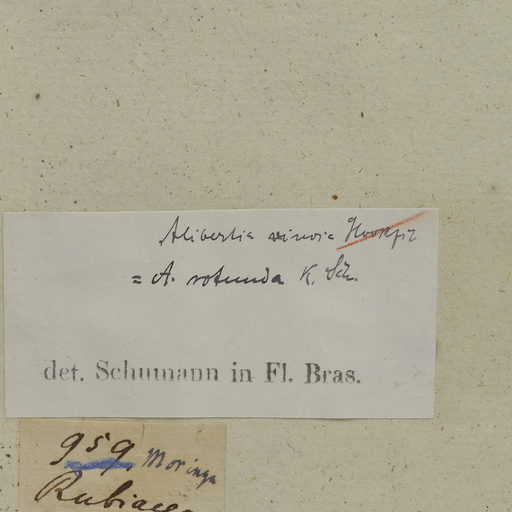 Alibertia
= A. rotunda K. Sch.
det. Schumann in Fl. Bras.
959. Moringa
Rubiacea